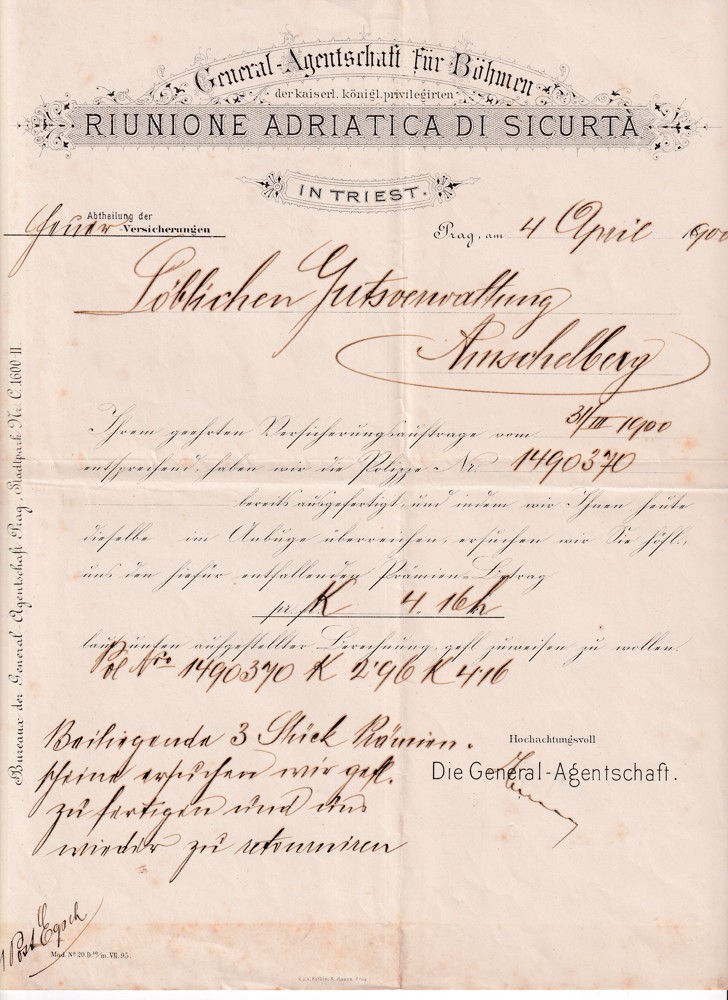 General-Agentschaft für Böhmen
der kaiserl. königl. privilegirten
RIUNIONE ADRIATICA DI SICURTÀ
IN TRIEST.
Abtheilung der
Feuer Versicherungen
Prag, am 4 April 1900
Löblichen Gutsverwaltung
Amschelberg
Ihrem geehrten Versicherungsauftrage vom 31/III 1900
entsprechend, haben wir die Polizze Nr. 1490370
bereits ausgefertigt, und indem wir Ihnen heute
dieselbe im Anbuge überreichen, ersuchen wir Sie höfl.,
uns den hiefür entfallenden Prämien-Betrag
pr. fl. K 4.16h
laut unten aufgestellter Berechnung, gefl. zuweisen zu wollen.
Pol Nro 1490370 K 2'96 K 416
Beiliegende 3 Stück Prämien-
scheine ersuchen wir gefl.
zu fertigen und uns
wieder zu retourniren
Hochachtungsvoll
Die General-Agentschaft.
Bureaux der General-Agentschaft Prag, Stadtpark Nr. C. 1600-II.
1 Post
Mod. Nº 20.D.
in. VII. 95.